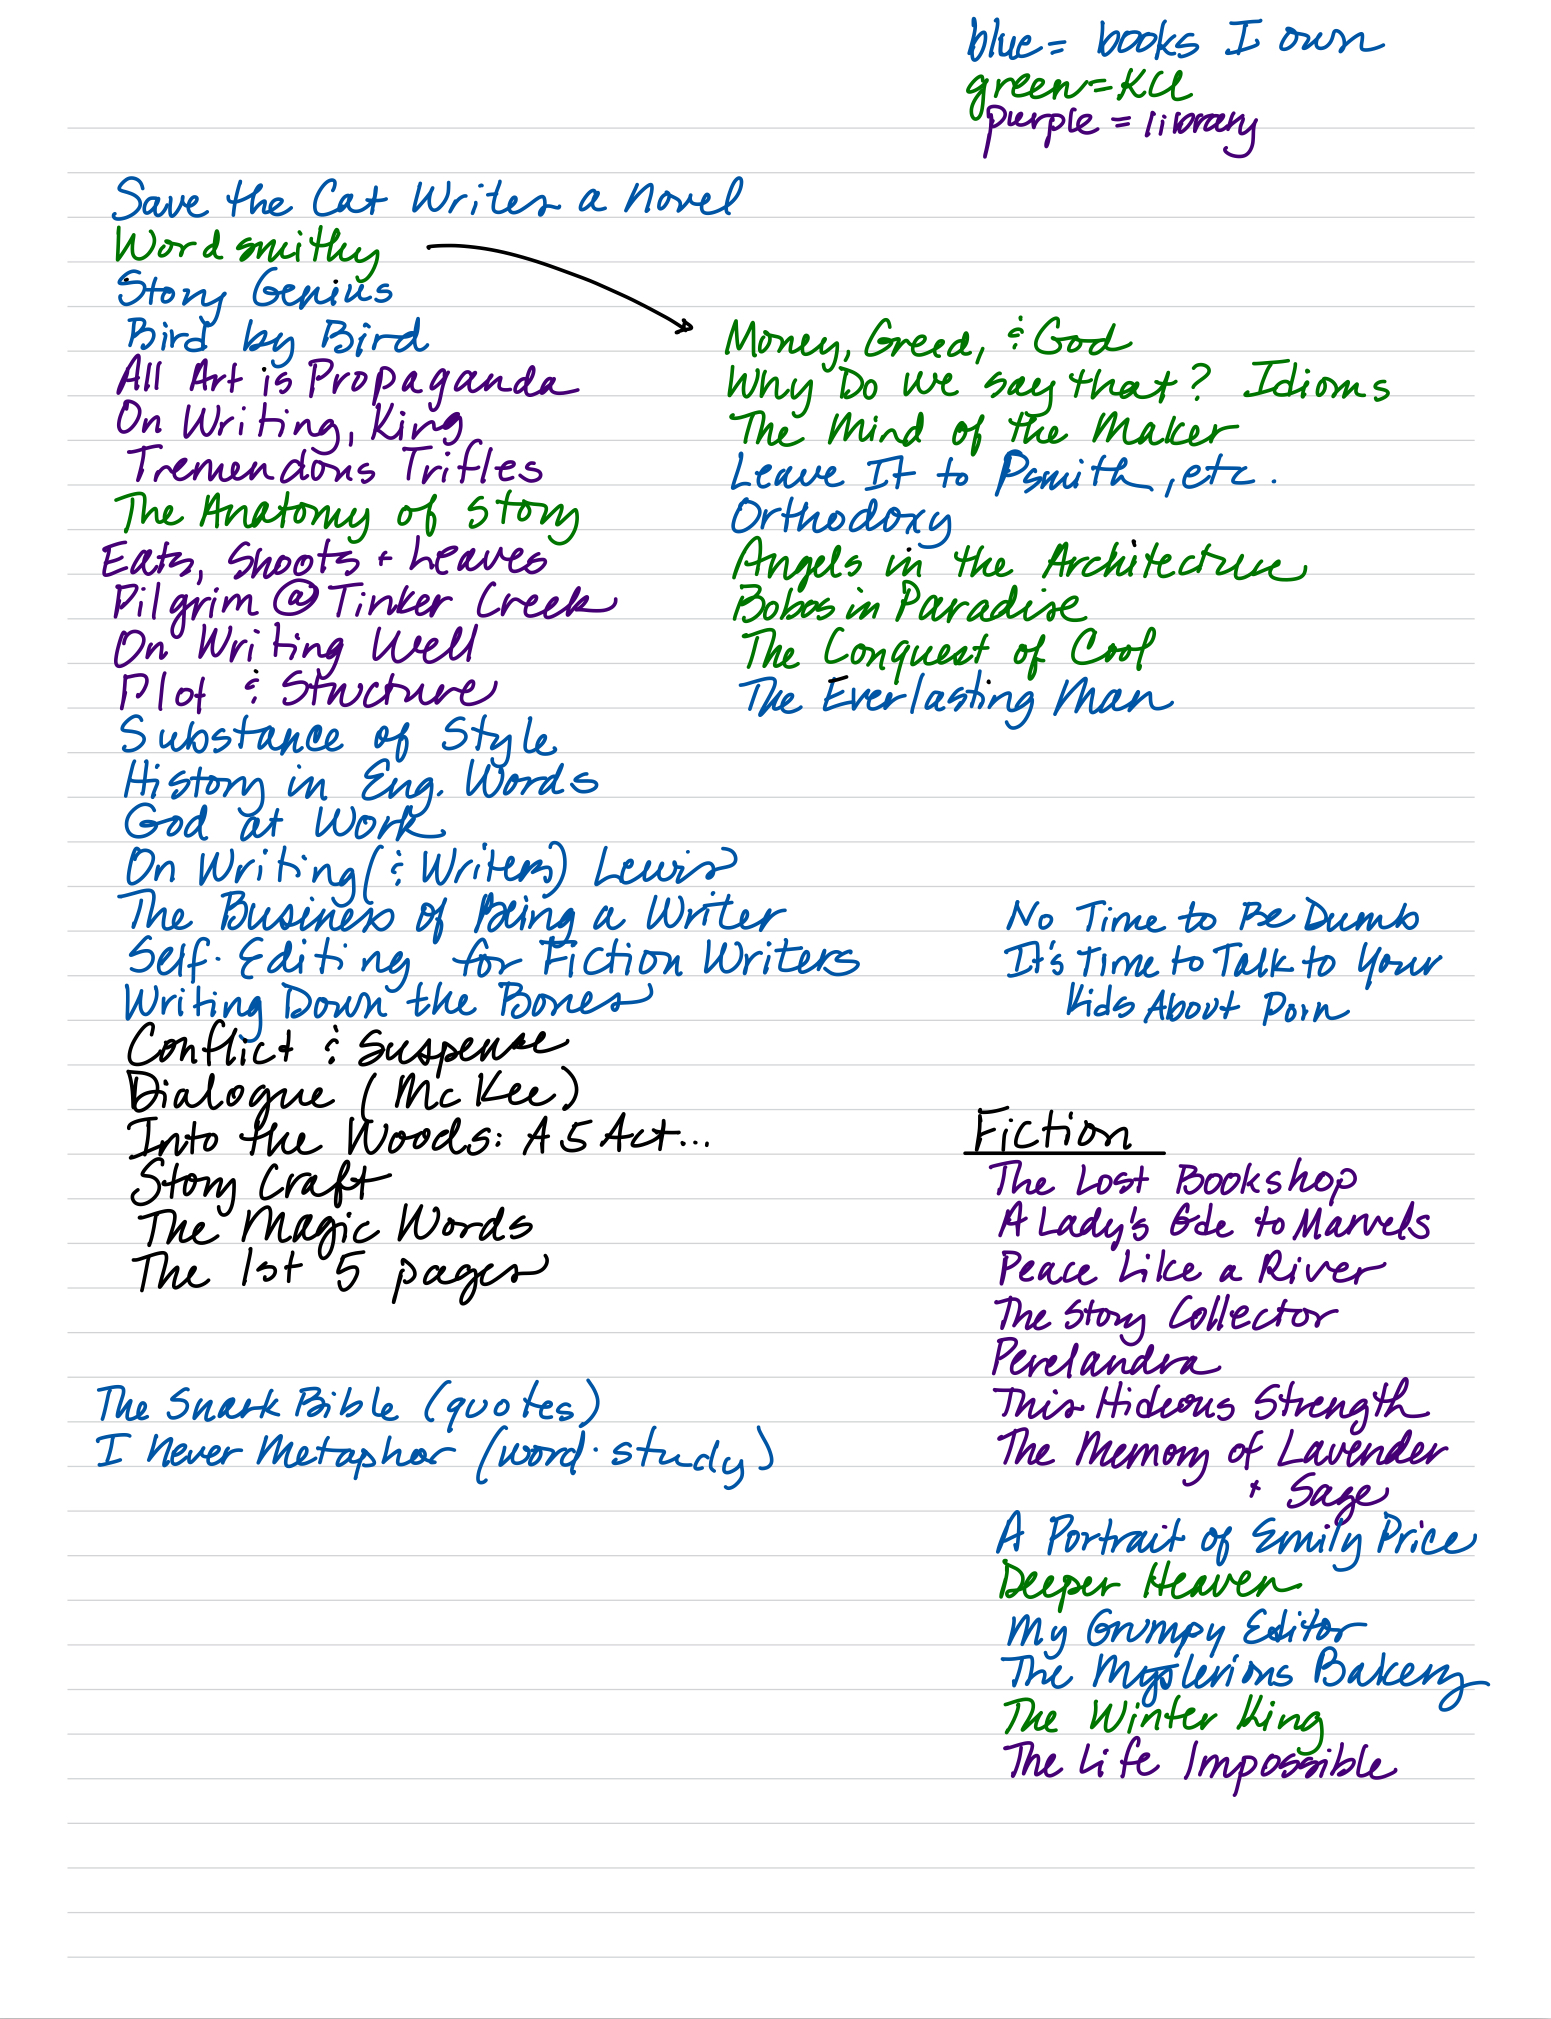 blue = books I own
green = KU
purple = library
Save the Cat Writes a Novel
Wordsmithy
Story Genius
Bird by Bird
All Art is Propaganda
On Writing, King
Tremendous Trifles
The Anatomy of Story
Eats, Shoots + Leaves
Pilgrim @ Tinker Creek
On Writing Well
Plot & Structure
Substance of Style
History in Eng. Words
God at Work
On Writing (& Writers) Lewis
The Business of Being a Writer
Self-Editing for Fiction Writers
Writing Down the Bones
Conflict & Suspense
Dialogue (McKee)
Into the Woods: A 5 Act...
Story Craft
The Magic Words
The 1st 5 pages
The Snark Bible (quotes)
I Never Metaphor (word-study)
Money, Greed, & God
Why Do We Say That? Idioms
The Mind of the Maker
Leave It to Psmith, etc.
Orthodoxy
Angels in the Architecture
Bobos in Paradise
The Conquest of Cool
The Everlasting Man
No Time to Be Dumb
It's Time to Talk to Your
Kids About Porn
Fiction
The Lost Bookshop
A Lady's Gde to Marvels
Peace Like a River
The Story Collector
Perelandra
This Hideous Strength
The Memory of Lavender
+ Sage
A Portrait of Emily Price
Deeper Heaven
My Grumpy Editor
The Mysterious Bakery
The Winter King
The Life Impossible